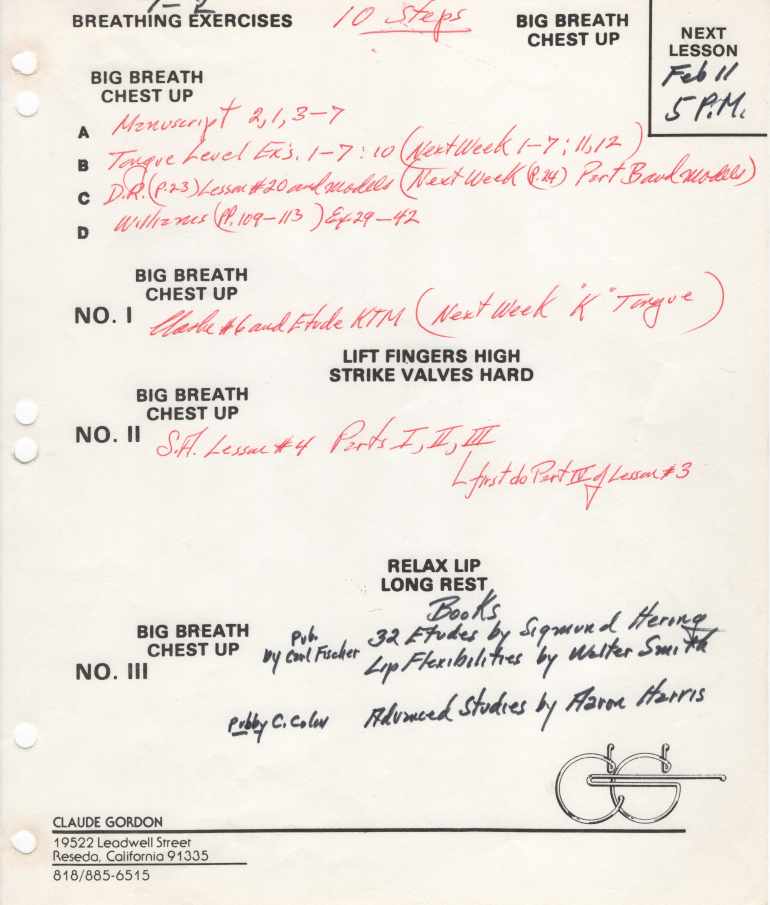 BREATHING EXERCISES 10 Steps BIG BREATH
CHEST UP
NEXT
LESSON
Feb 11
5 P.M.
BIG BREATH
CHEST UP
A Manuscript 2, 1, 3-7
B Tongue Level Ex's. 1-7: 10 (Next Week 1-7; 11, 12)
C D.R. (P.23) Lesson #20 and models (Next Week (P.24) Part B and models)
D Williams (PP. 109-113) Ex 29-42
BIG BREATH
CHEST UP
NO. I Clarke #6 and Etude KTM (Next Week "K" Tongue)
LIFT FINGERS HIGH
STRIKE VALVES HARD
BIG BREATH
CHEST UP
NO. II S.A. Lesson #4 Parts I, II, III
first do Part IV of Lesson #3
RELAX LIP
LONG REST
Books
BIG BREATH
CHEST UP
NO. III
Pub. 32 Etudes by Sigmund Hering
by Carl Fischer Lip Flexibilities by Walter Smith
Pub by C. Colin Advanced Studies by Aaron Harris
CG
CLAUDE GORDON
19522 Leadwell Street
Reseda, California 91335
818/885-6515